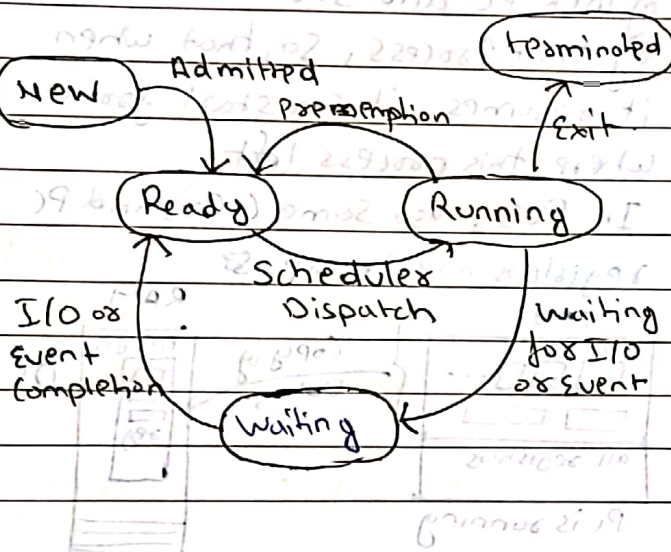 terminated
New
Admitted
Preemption
Exit
Ready
Running
Scheduler
Dispatch
I/O or
Event
Completion
Waiting
for I/O
or Event
Waiting